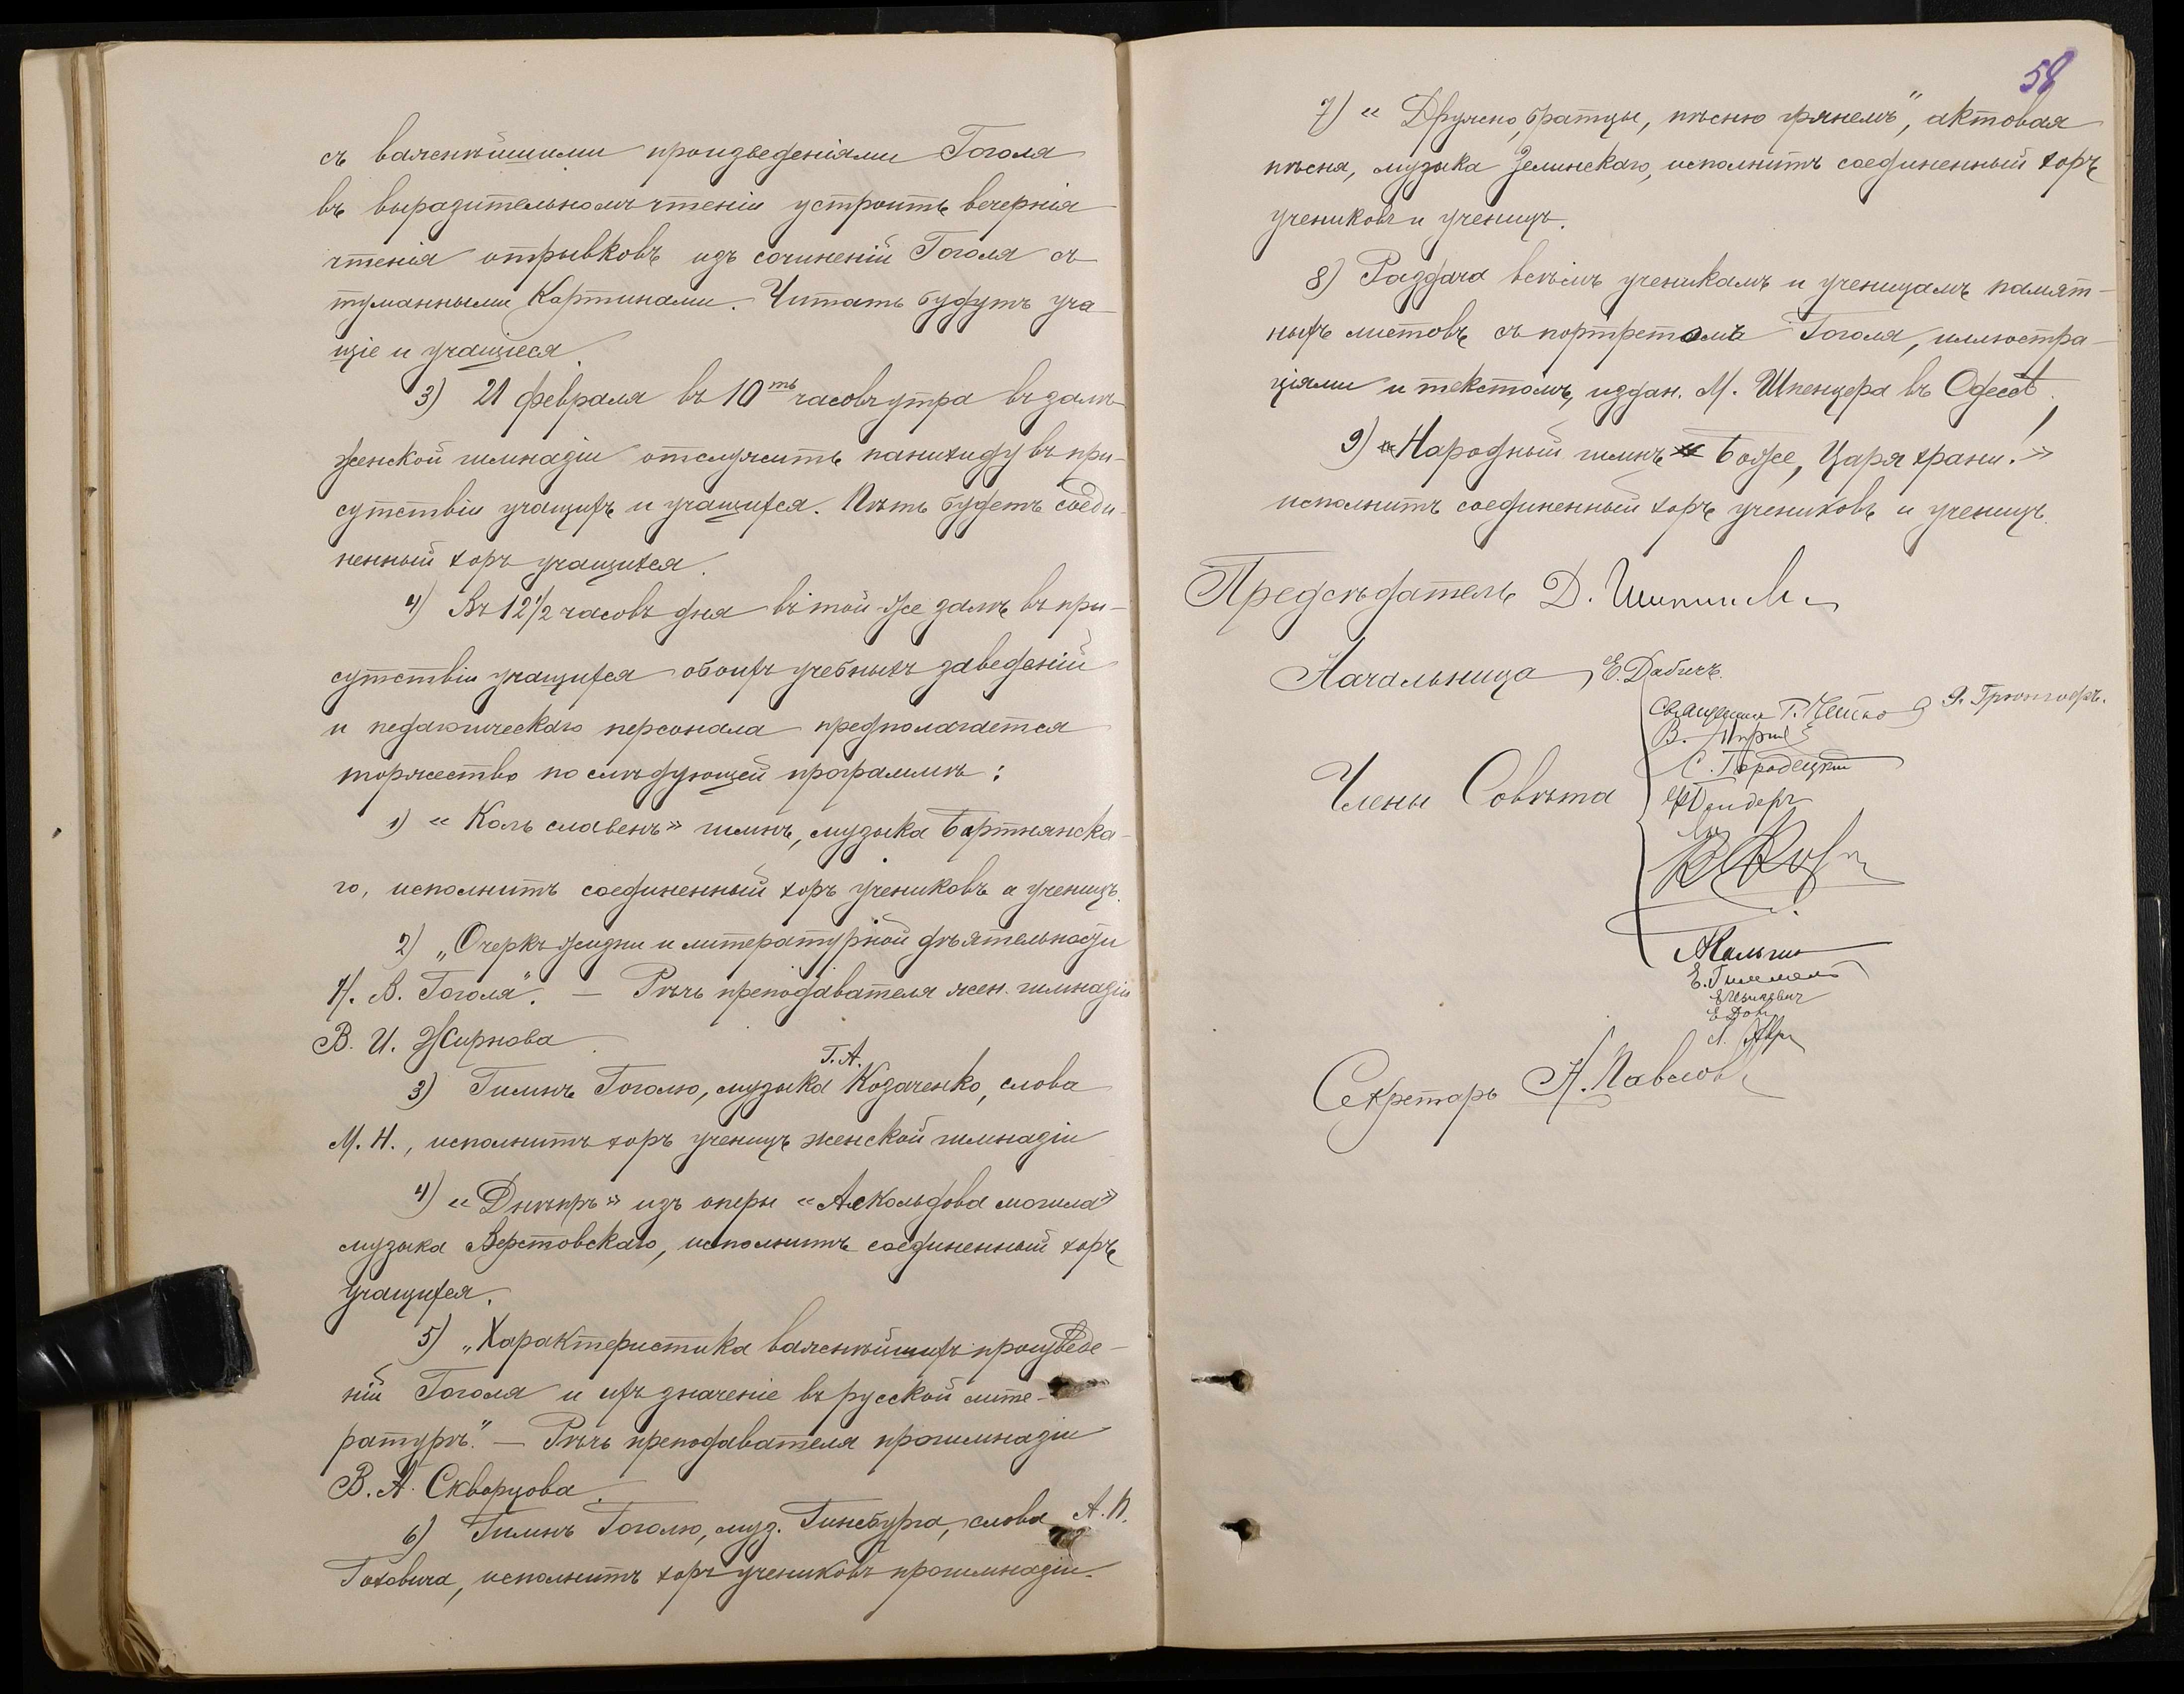 съ важнѣйшими произведеніями Гоголя
въ выразительномъ чтеніи устроить вечернія
чтенія отрывковъ изъ сочиненій Гоголя съ
туманными картинами. Читать будутъ уча-
щіе и учащіеся.
3) 21 февраля въ 10ть часовъ утра въ залѣ
женской гимназіи отслужить панихиду въ при-
сутствіи учащихъ и учащихся. Пѣть будетъ соеди-
ненный хоръ учащихся.
4) Въ 12 1/2 часовъ дня въ той же залѣ въ при-
сутствіи учащихся обоихъ учебныхъ заведеній
и педагогическаго персонала предполагается
торжество по слѣдующей программѣ:
1) «Коль славенъ» гимнъ, музыка Бортнянска-
го, исполнитъ соединенный хоръ учениковъ и ученицъ.
2) „Очеркъ жизни и литературной дѣятельности
Н. В. Гоголя". — Рѣчь преподавателя жен. гимназіи
В. И. Жирнова.
3) Гимнъ Гоголю, музыка Г. А. Козаченко, слова
М. Н., исполнитъ хоръ ученицъ женской гимназіи
4) «Днѣпръ» изъ оперы «Аскольдова могила»
музыка Верстовскаго, исполнитъ соединенный хоръ
учащихся.
5) „Характеристика важнѣйшихъ произведе-
ній Гоголя и ихъ значеніе въ русской лите-
ратурѣ". — Рѣчь преподавателя прогимназіи
В. А. Скворцова.
6) Гимнъ Гоголю, муз. Гинсбурга, слова А. П.
Гоховича, исполнитъ хоръ учениковъ прогимназіи.
58
7) «Дружно, братцы, пѣсню грянемъ", актовая
пѣсня, музыка Зелинскаго, исполнитъ соединенный хоръ
учениковъ и ученицъ.
8) Раздача всѣмъ ученикамъ и ученицамъ памят-
ныхъ листовъ съ портретомъ Гоголя, иллюстра-
ціями и текстомъ, издан. М. Шпенцера въ Одессѣ.
9) Народный гимнъ «Боже, Царя храни!»
исполнитъ соединенный хоръ учениковъ и ученицъ.
Предсѣдатель Д.
Начальница Е. Дабичъ.
Священникъ Г.
В.
С. Городецкій
Члены Совѣта
Е.
Секретарь Н. Павловъ